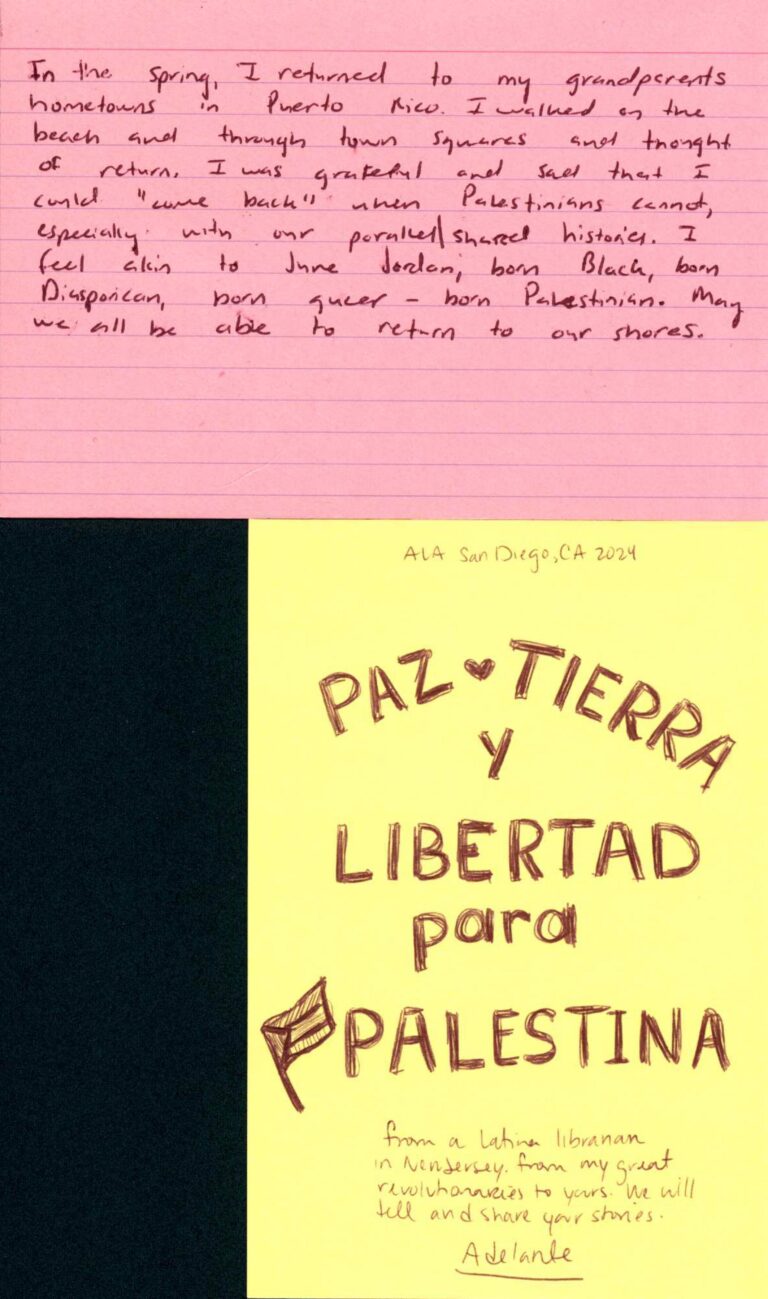 In the Spring, I returned to my grandparents
hometowns in Puerto Rico. I walked on the
beach and through town squares and thought
of return. I was grateful and sad that I
could "come back" when Palestinians cannot,
especially with our parallel/shared histories. I
feel akin to June Jordan, born Black, born
Diasporican, born queer – born Palestinian. May
we all be able to return to our shores.
ALA San Diego, CA 2024
PAZ ♥ TIERRA
y
LIBERTAD
para
PALESTINA
from a Latina librarian
in New Jersey. from my great
revolutionaries to yours. We will
tell and share your stories.
Adelante